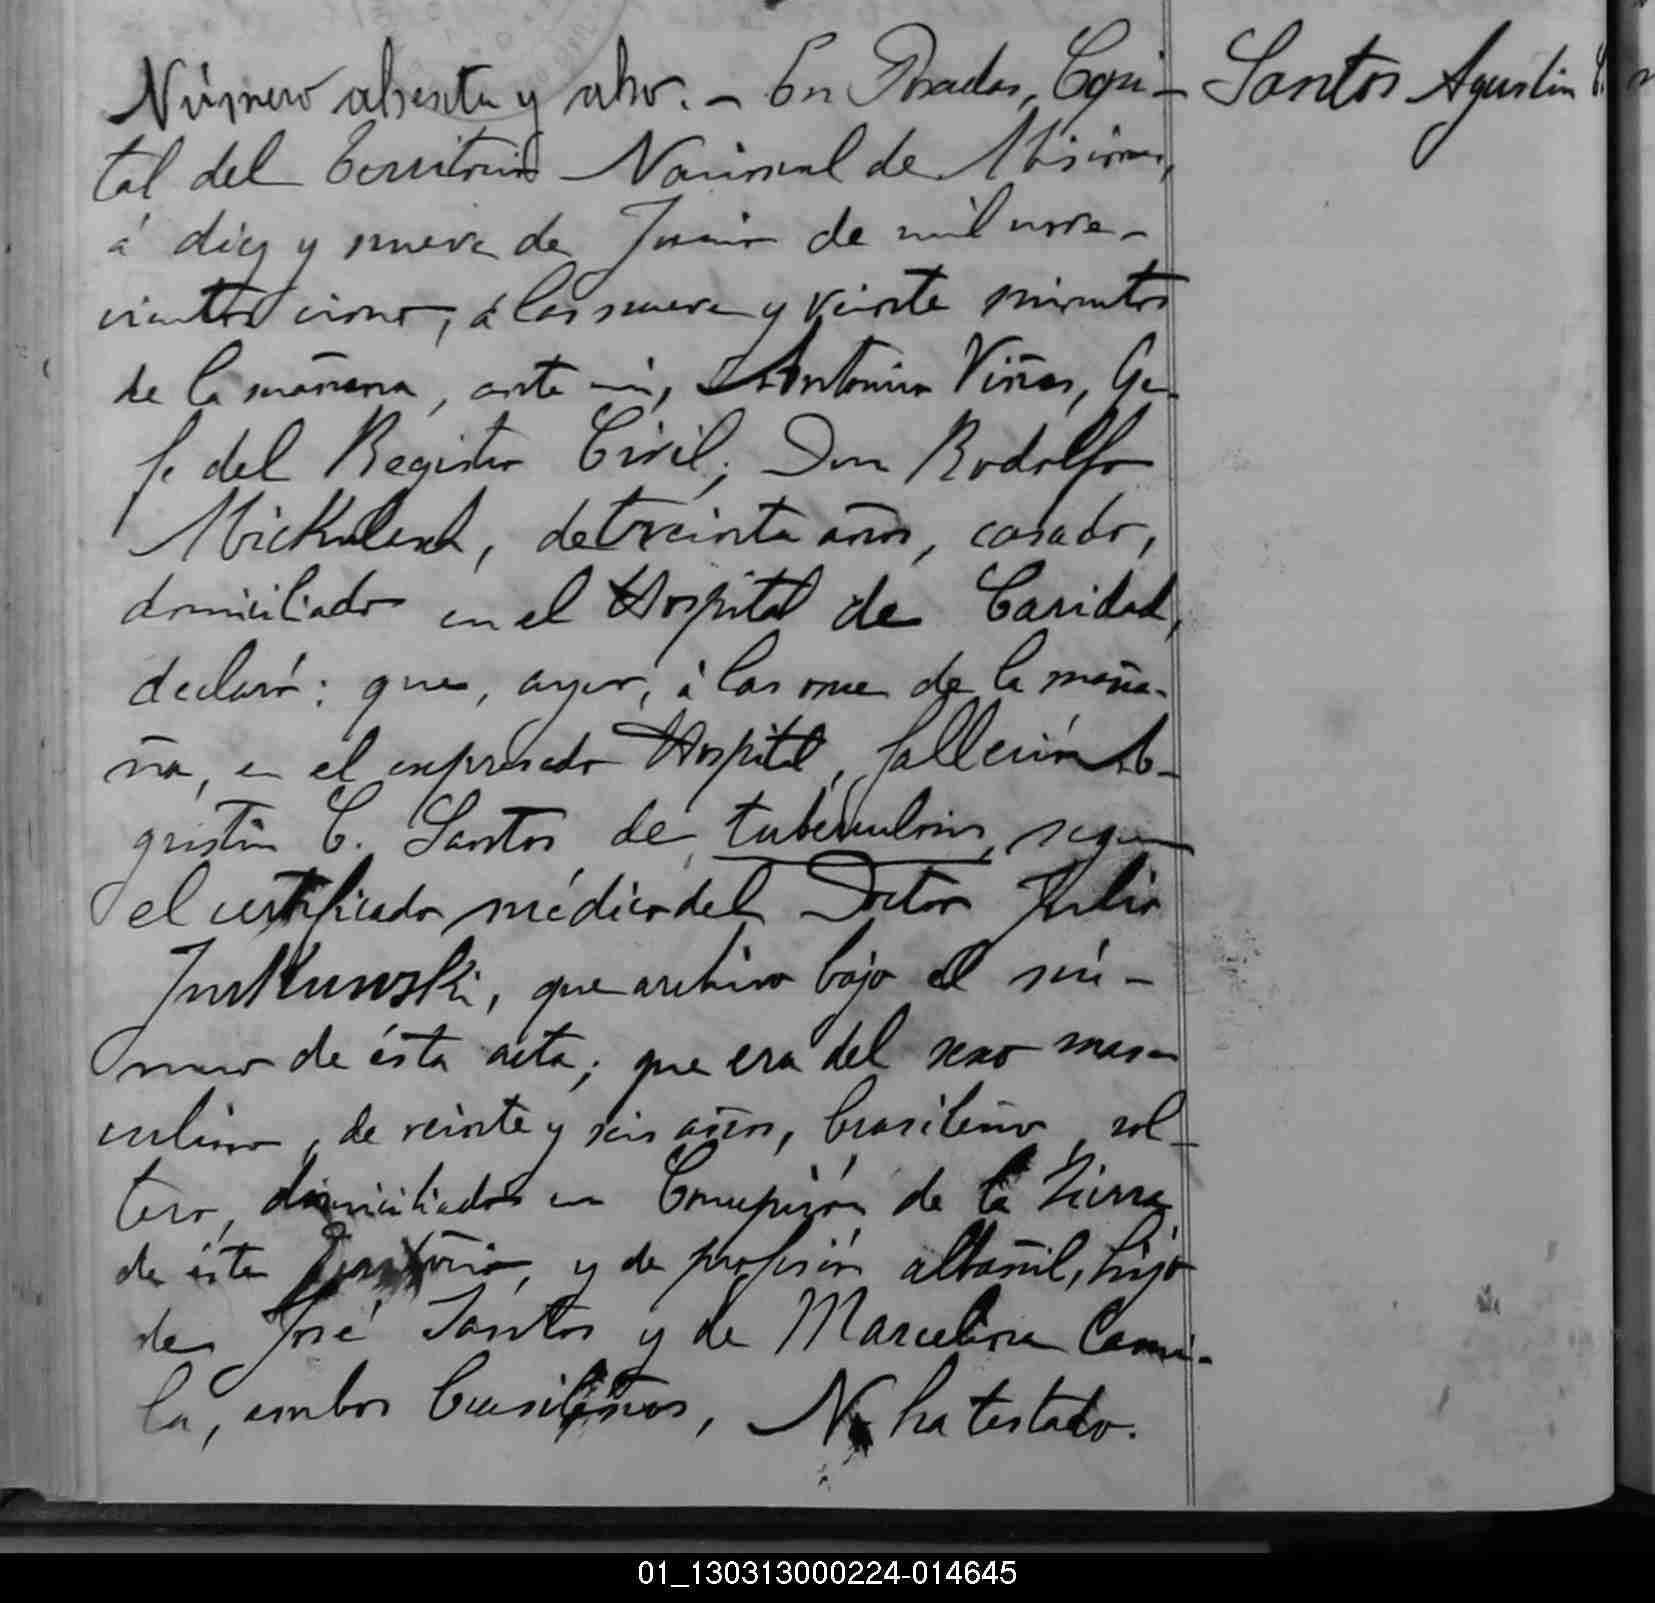 Número ochenta y ocho. – En Posadas, Capi-
Santos Agustin C.
tal del Territorio Nacional de Misiones,
á diez y nueve de Junio de mil nove-
cientos cinco, á las nueve y veinte minutos
de la mañana, ante mi, Antonio Viñas, Ge-
fe del Registro Civil; Don Rodolfo
de treinta años, casado,
domiciliado en el Hospital de Caridad,
declaró: que, ayer, á las once de la maña-
ña, en el expresado Hospital, falleció A-
gustin C. Santos de tuberculosis, segun
el certificado médico del Doctor Julio
que archivo bajo el nú-
mero de ésta acta; que era del sexo mas-
culino, de veinte y seis años, brasileño, sol-
tero, domiciliado en Concepción de la Sierra
de éste Territorio, y de profesión albañil, hijo
de José Santos y de Marcelina Cami-
la, ambos brasileños, No ha testado.
01_130313000224-014645